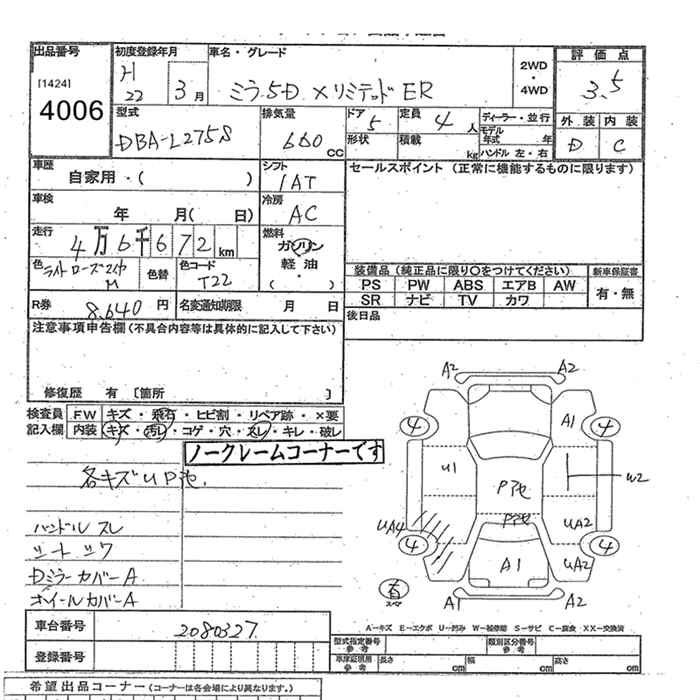 出品番号
[1424]
4006
初度登録年月
H
22
3月
車名・グレード
ミラ 5D X リミテッド ER
2WD
・
4WD
評価点
3.5
外装 内装
D C
型式
DBA-L275S
排気量
660
CC
ドア
5
定員
4人
形状
積載
kg
ディーラー・並行
モデル年式 年
ハンドル 左・右
車歴
自家用・( )
シフト
IAT
セールスポイント (正常に機能するものに限ります)
車検
年 月( 日)
冷房
AC
走行
4万6千672km
燃料
ガソリン
軽油
・
( )
色
M
色替
色コード
T22
装備品 (純正品に限り○をつけてください)
新車保証書
PS PW ABS エアB AW
SR ナビ TV カワ
有・無
R券
8,640 円
名変通知期限 月 日
後日品
注意事項申告欄 (不具合内容等は具体的に記入して下さい)
修復歴 有 〔箇所 〕
検査員
記入欄
FW キズ・飛石・ヒビ割・リペア跡・×要
内装 キズ・汚れ・コゲ・穴・スレ・キレ・破し
ノークレームコーナーです
各キズUP他.
ハンドルスレ
シートシワ
Dミラーカバー A
ホイールカバー A
A2
A2
4
A1
4
U1
W2
Pアセ
Pアセ
UA4
UA2
4
A1
UA2
4
A1
A2
A-キズ E-エクボ U-凹み W-補修跡 S-サビ C-腐食 XX-交換済
車台番号
2080327
登録番号
型式指定番号
参考
類別区分番号
参考
車庫証明用
参考
長さ cm
幅 cm
高さ cm
希望出品コーナー (コーナーは各会場により異なります。)